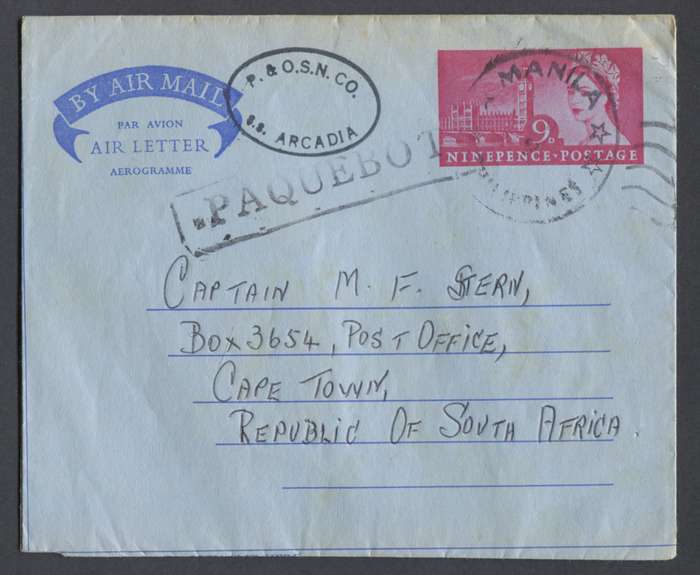 BY AIR MAIL
PAR AVION
AIR LETTER
AEROGRAMME
P. & O.S.N. CO.
S.S. ARCADIA
PAQUEBOT
MANILA
PHILIPPINES
9D
NINEPENCE·POSTAGE
CAPTAIN M. F. STERN,
BOX 3654, POST OFFICE,
CAPE TOWN,
REPUBLIC OF SOUTH AFRICA.